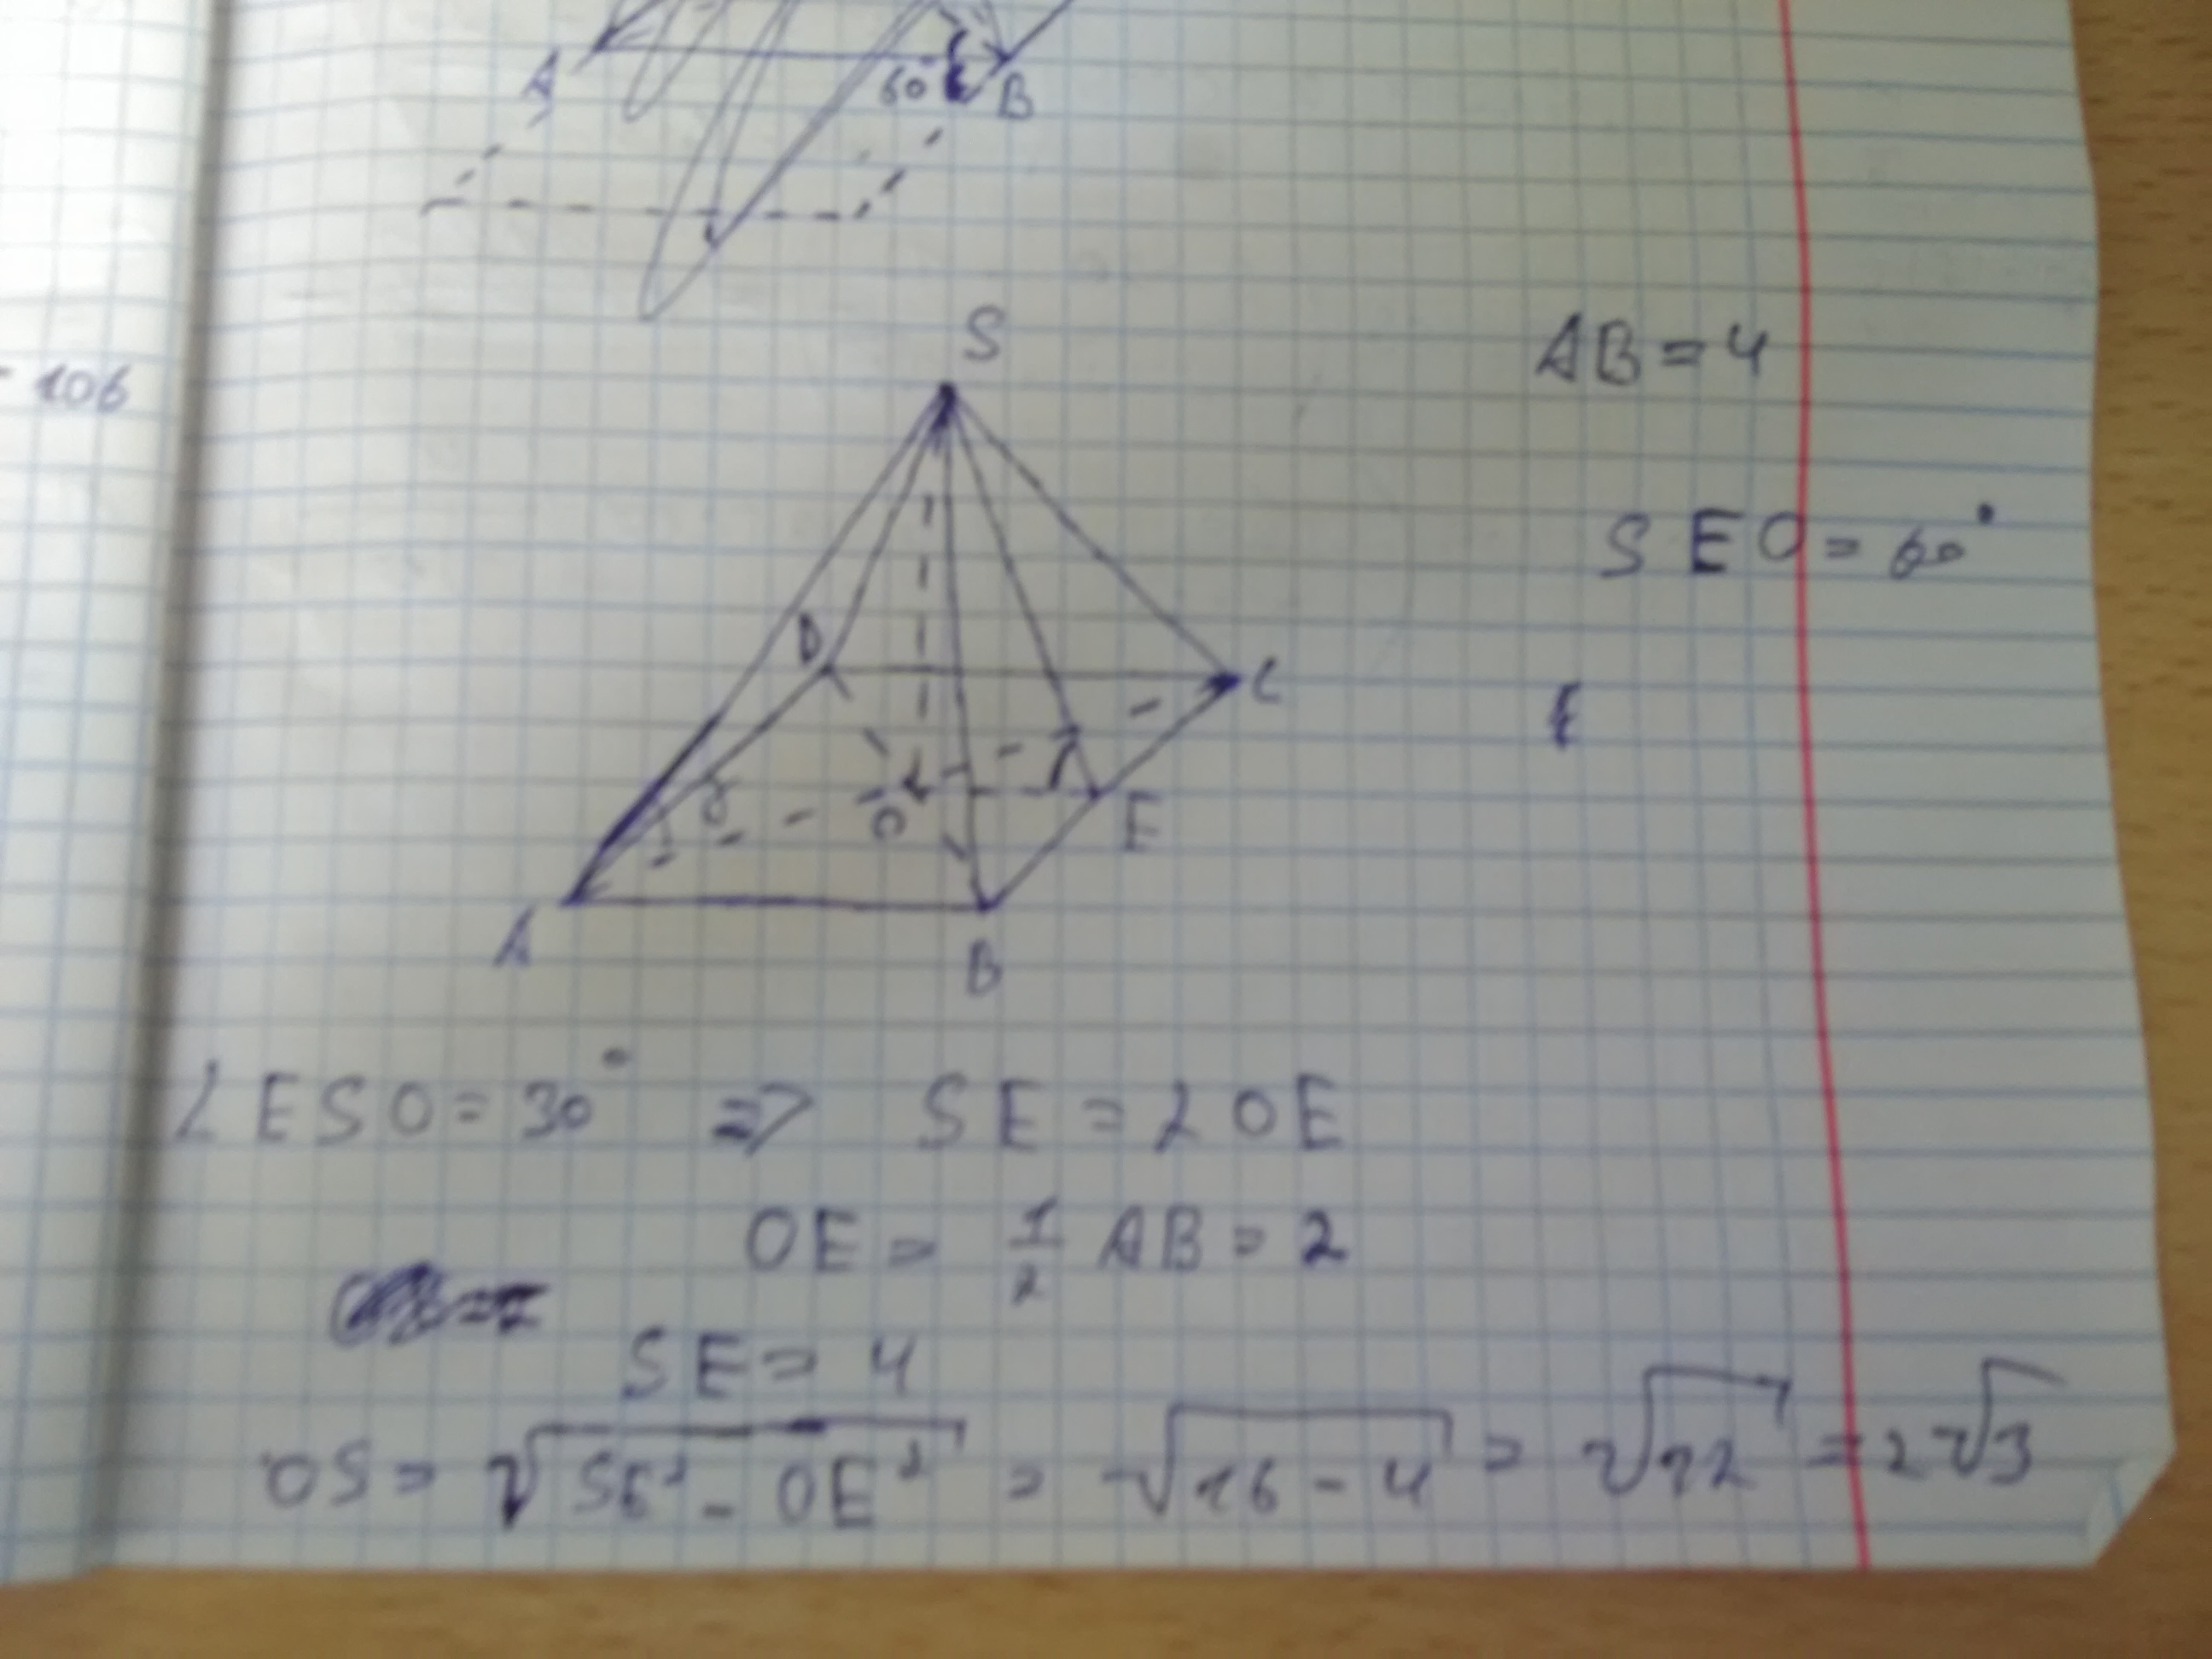 A
60
B
- 106
S
AB = 4
SEO = 60°
D
C
O
E
A
B
∠ESO = 30° => SE = 2OE
OE = 1/2 AB = 2
SE = 4
OS = √(SE² - OE²) = √(16 - 4) = √12 = 2√3